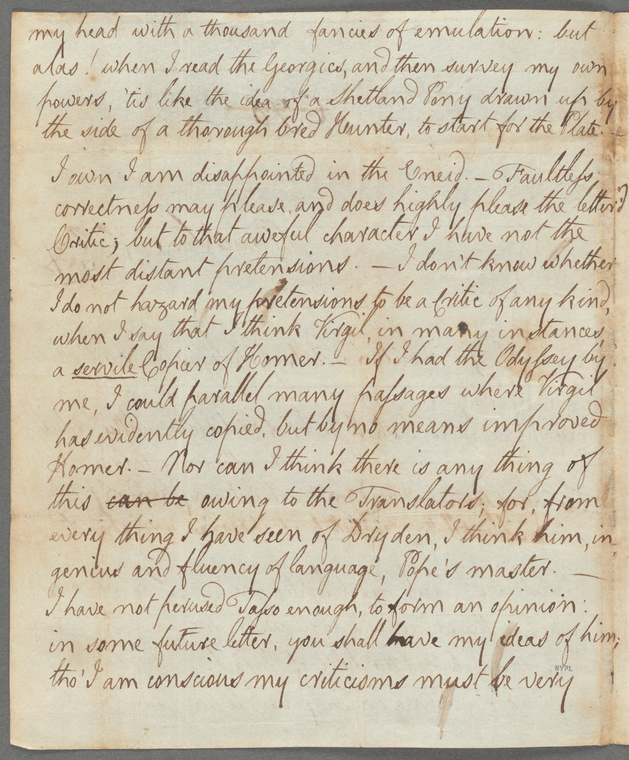 my head with a thousand fancies of emulation: but
alas! when I read the Georgics, and then survey my own
powers, 'tis like the idea of a Shetland Pony drawn up by
the side of a thorough bred Hunter, to start for the Plate. —
I own I am disappointed in the Eneid. — Faultless
correctness may please, and does highly please the letter'd
Critic; but to that aweful character I have not the
most distant pretensions. — I don't know whether
I do not hazard my pretensions to be a Critic of any kind,
when I say that I think Virgil, in many instances,
a servile Copier of Homer. — If I had the Odyssey by
me, I could parallel many passages where Virgil
has evidently copied, but by no means improved
Homer. — Nor can I think there is any thing of
this can be owing to the Translators; for, from
every thing I have seen of Dryden, I think him, in
genius and fluency of language, Pope's master. —
I have not perused Tasso enough, to form an opinion:
in some future letter, you shall have my ideas of him;
tho' I am conscious my criticisms must be very
NYPL